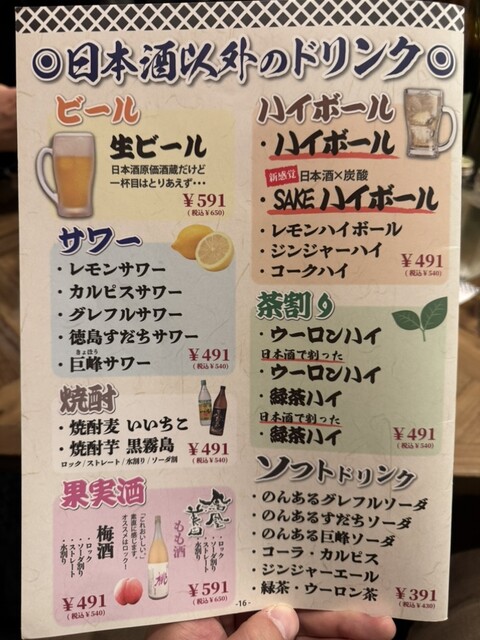 日本酒以外のドリンク
ビール
生ビール
日本酒原価酒蔵だけど
一杯目はとりあえず・・・
¥591
(税込¥650)
サワー
・レモンサワー
・カルピスサワー
・グレフルサワー
・徳島すだちサワー
きょほう
・巨峰サワー
¥491
(税込¥540)
焼酎
・焼酎麦 いいちこ
・焼酎芋 黒霧島
ロック/ストレート/水割り/ソーダ割
¥491
(税込¥540)
果実酒
梅酒
・ロック
・ソーダ割り
・ストレート
・水割り
¥491
(税込¥540)
「どれおいしい。」
素直に感じます。
オススメはロック!
桃
もも酒
・ロック
・ソーダ割り
・ストレート
・水割り
¥591
(税込¥650)
ハイボール
・ハイボール
新感覚 日本酒×炭酸
・SAKEハイボール
・レモンハイボール
・ジンジャーハイ
・コークハイ
¥491
(税込¥540)
茶割り
・ウーロンハイ
日本酒で割った
・ウーロンハイ
・緑茶ハイ
日本酒で割った
・緑茶ハイ
¥491
(税込¥540)
ソフトドリンク
・のんあるグレフルソーダ
・のんあるすだちソーダ
・のんある巨峰ソーダ
・コーラ・カルピス
・ジンジャーエール
・緑茶・ウーロン茶
¥391
(税込¥430)
-16-